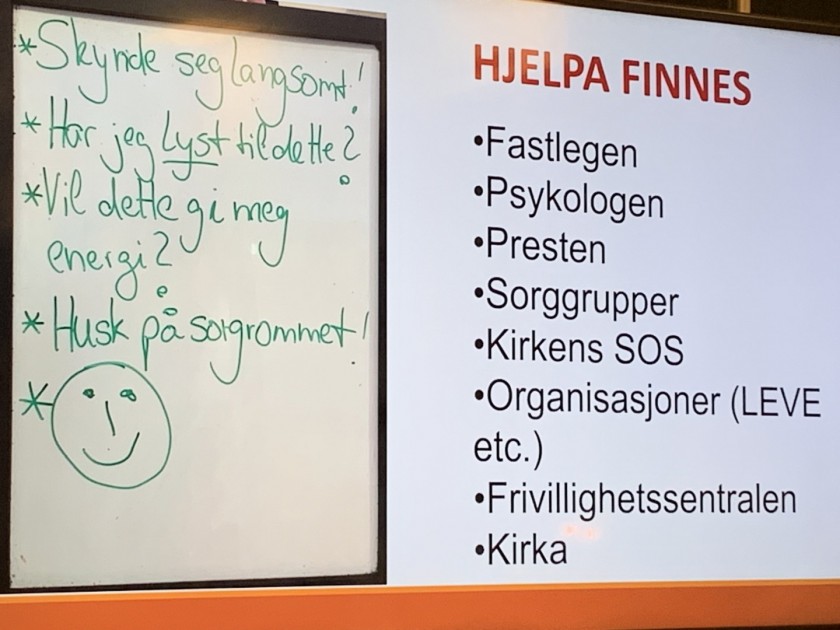 *Skynde seg langsomt!
*Har jeg lyst til dette?
*Vil dette gi meg
energi?
*Husk på sorgrommet!
*
HJELPA FINNES
•Fastlegen
•Psykologen
•Presten
•Sorggrupper
•Kirkens SOS
•Organisasjoner (LEVE
etc.)
•Frivillighetssentralen
•Kirka